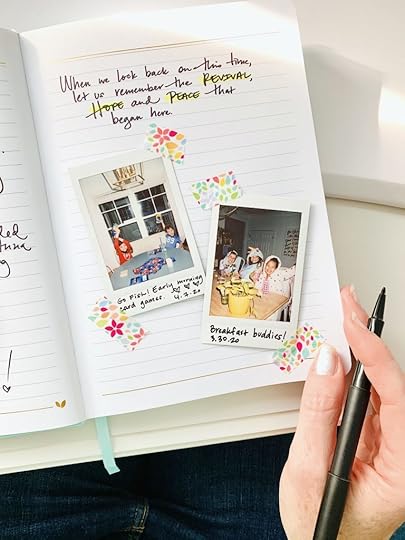 When we look back on this time,
let us remember the REVIVAL,
HOPE and PEACE that
began here.
Go Fish! Early morning
card games. 4.7.20
Breakfast buddies!
3.30.20